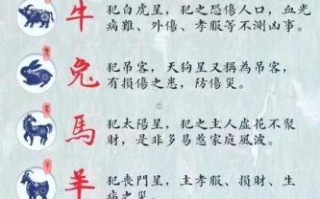 牛
犯白虎星，犯之恐傷人口，血光
病難、外傷、孝服等不測凶事。
兔
犯吊客，天狗星又稱為吊客，
有損傷之患，防傷災。
馬
犯太陽星，犯之主人虛花不聚
財，是非多易惹家庭風波。
羊
犯喪門星，主孝服、損財、生
病災。